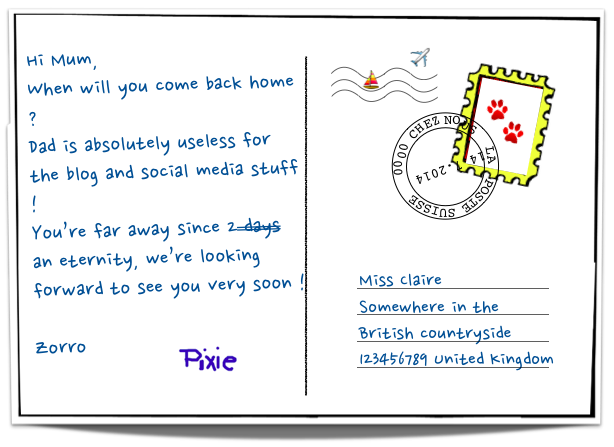 Hi Mum,
When will you come back home
?
Dad is absolutely useless for
the blog and social media stuff
!
You're far away since 2 days
an eternity, we're looking
forward to see you very soon !
Zorro
Pixie
0000 CHEZ NOUS
14.2014
LA POSTE SUISSE
Miss Claire
Somewhere in the
British countryside
123456789 United Kingdom